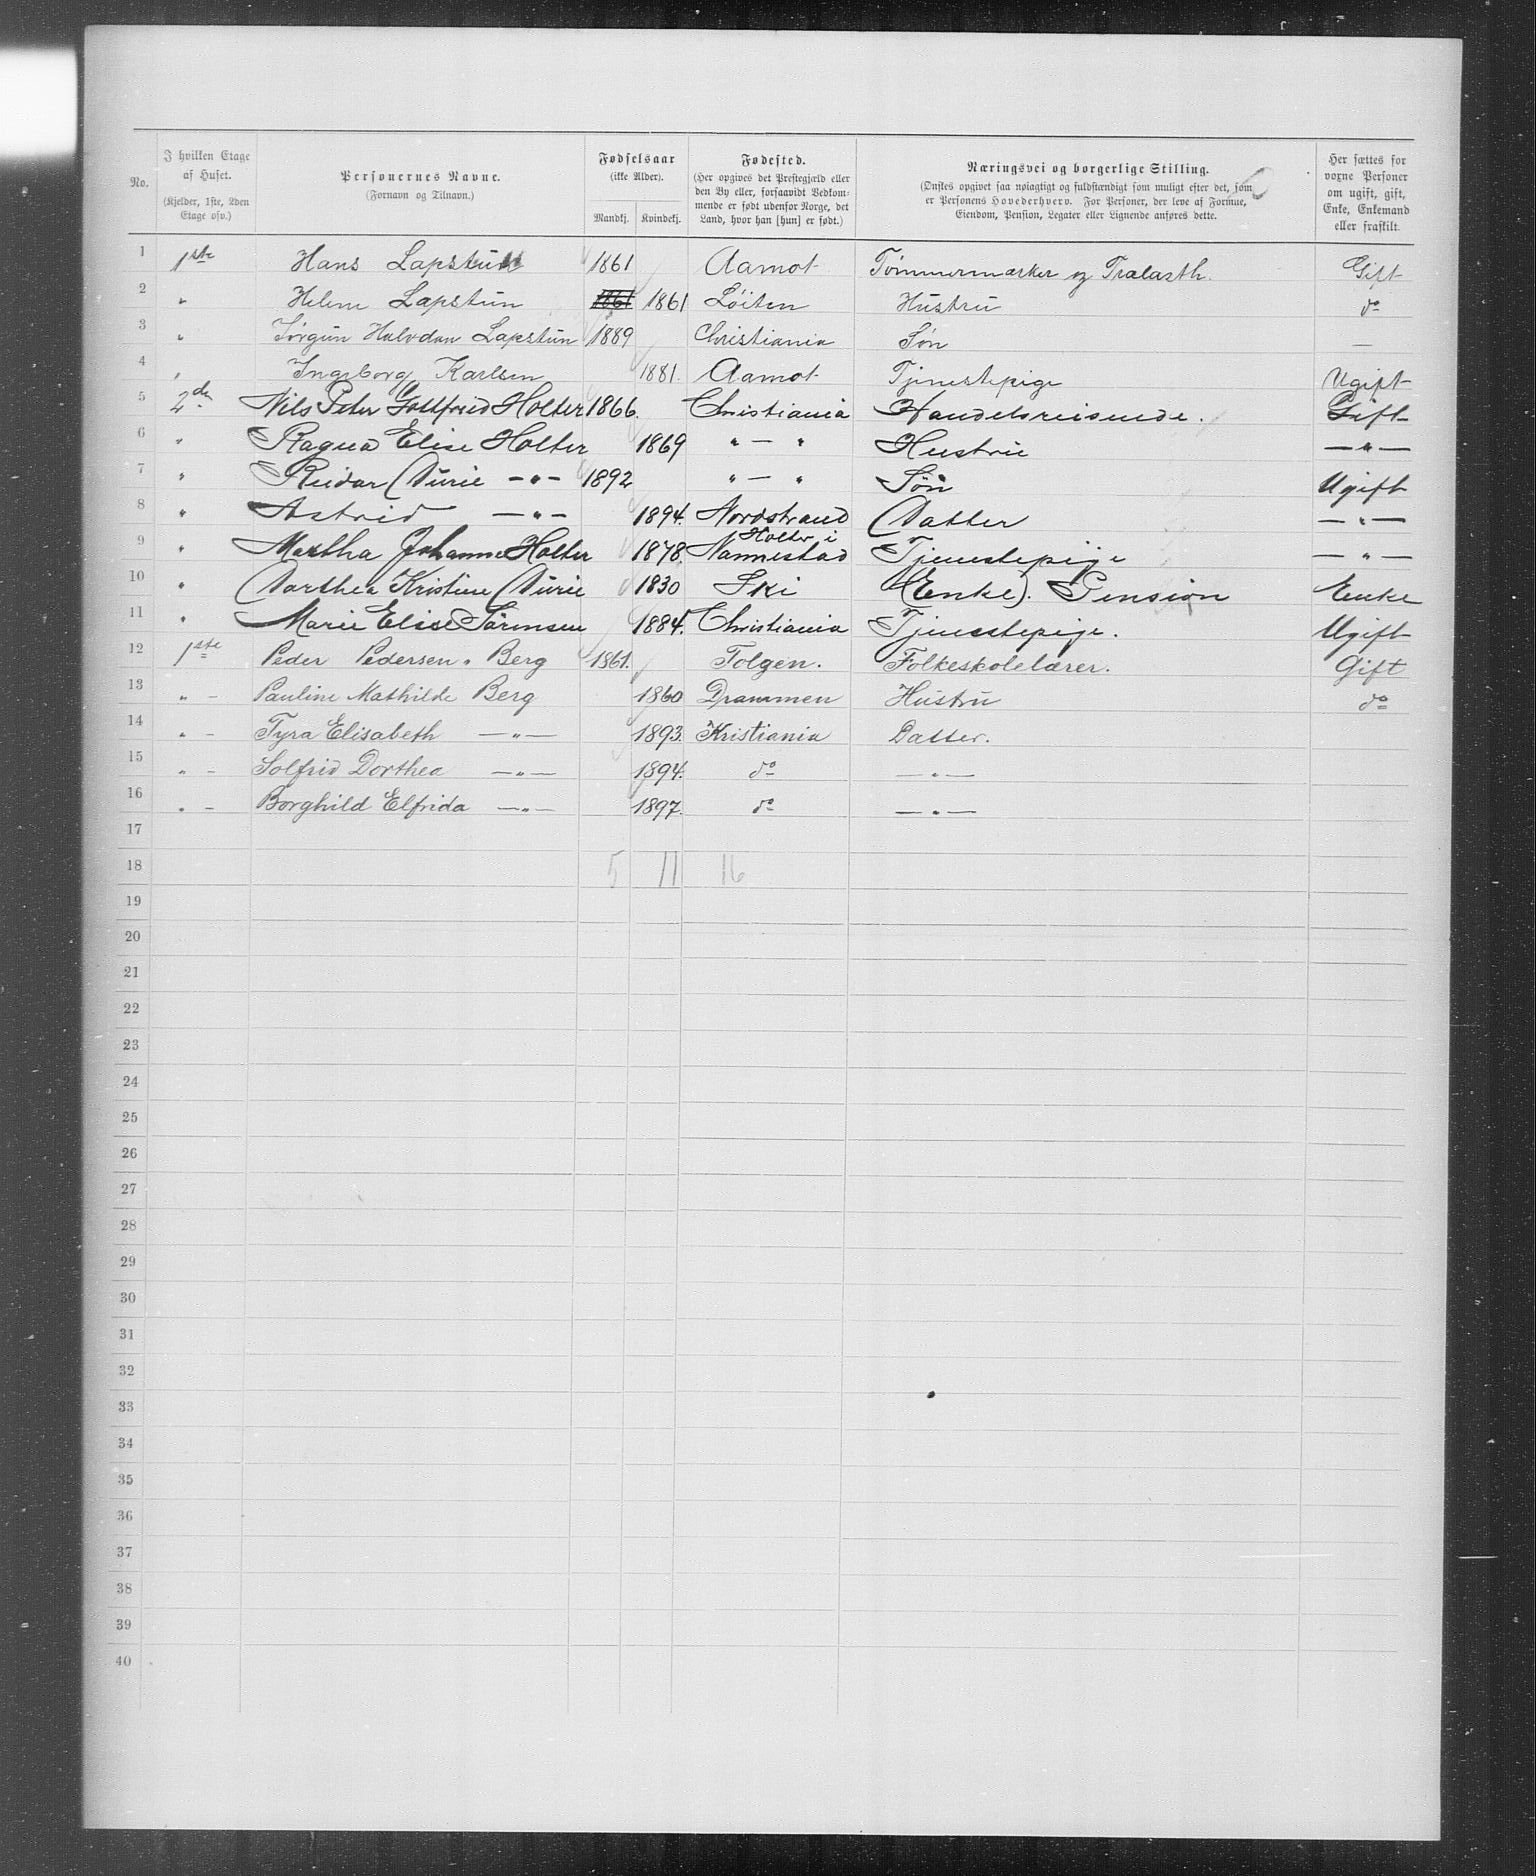 No. | I hvilken Etage af Huset. (Kjelder, 1ste, 2den Etage osv.) | Personernes Navne. (Fornavn og Tilnavn.) | Fødselsaar (ikke Alder). Mandkj. | Kvindekj. | Fødested. (Her opgives det Prestegjæld eller den By eller, forsaavidt Vedkommende er født udenfor Norge, det Land, hvor han [hun] er født.) | Næringsvei og borgerlige Stilling. (Ønskes opgivet saa nøiagtigt og fuldstændigt som muligt efter det, som er Personens Hovederhverv. For Personer, der leve af Formue, Eiendom, Pension, Legater eller Lignende anføres dette. | Her sættes for voxne Personer om ugift, gift, Enke, Enkemand eller fraskilt.
1 | 1ste | Hans Lapstun | 1861 | | Aamot | Tømmermærker og Tralasth. | Gift
2 | " | Helene Lapstun | 1861 | 1861 | Løiten | Hustru | do
3 | " | Jørgun Halvdan Lapstun | 1889 | | Christiania | Søn | —
4 | " | Ingeborg Karlsen | | 1881. | Aamot | Tjenestepige | Ugift
5 | 2den | Nils Peter Gottfried Holter | 1866. | | Christiania | Handelsreisende. | Gift
6 | " | Ragna Elise Holter | | 1869 | " — " | Hustru | — " —
7 | " | Reidar Durie — " — | 1892 | | " — " | Søn | Ugift
8 | " | Astrid — " — | | 1894. | Nordstrand | Datter | — " —
9 | " | Martha Johanne Holter | | 1878. | Holter i Nannestad | Tjenestepige | — " —
10 | " | Dorthea Kristine Durie | | 1830 | Ski | (Enke). Pension | Enke
11 | " | Marie Elise Sørensen | | 1884. | Christiania | Tjenestepige. | Ugift
12 | 1ste | Peder Pedersen Berg | 1861. | | Tolgen. | Folkeskolelærer. | Gift
13 | " – | Pauline Mathilde Berg | | 1860 | Drammen | Hustru | do
14 | " – | Tyra Elisabeth — " — | | 1893. | Kristiania | Datter. |
15 | " – | Solfrid Dorthea — " — | | 1894. | do | — " — |
16 | " – | Borghild Elfrida — " — | | 1897. | do | — " — |
17
18 | | | 5 | 11 | 16
19
20
21
22
23
24
25
26
27
28
29
30
31
32
33
34
35
36
37
38
39
40